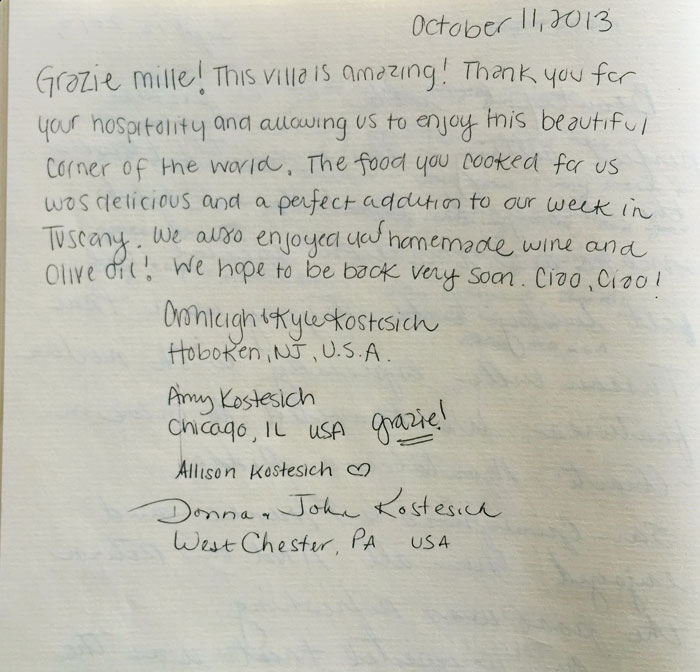 October 11, 2013
Grazie mille! This villa is amazing! Thank you for
your hospitality and allowing us to enjoy this beautiful
corner of the world. The food you cooked for us
was delicious and a perfect addition to our week in
Tuscany. We also enjoyed your homemade wine and
Olive Oil! We hope to be back very soon. Ciao, Ciao!
& Kyle Kostesich
Hoboken, NJ, U.S.A.
Amy Kostesich
Chicago, IL USA grazie!
Allison Kostesich ♡
Donna & John Kostesich
West Chester, PA USA